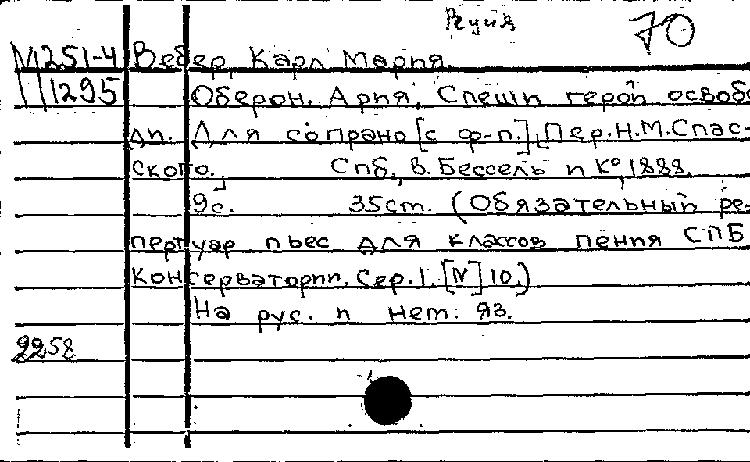 70
М251-4 Вебер, Карл Мария.
1295 Оберон. Ария. Спеши герой освобо-
ди. Для сопрано [с ф-п.]. Пер. Н.М. Спас-
ского. Спб., В. Бессель и К°, 1888.
9с. 35cm. (Обязательный ре-
пертуар пьес для классов пения СПБ
Консерватории. Сер. I. [N] 10.)
На рус. и нем. яз.
2258